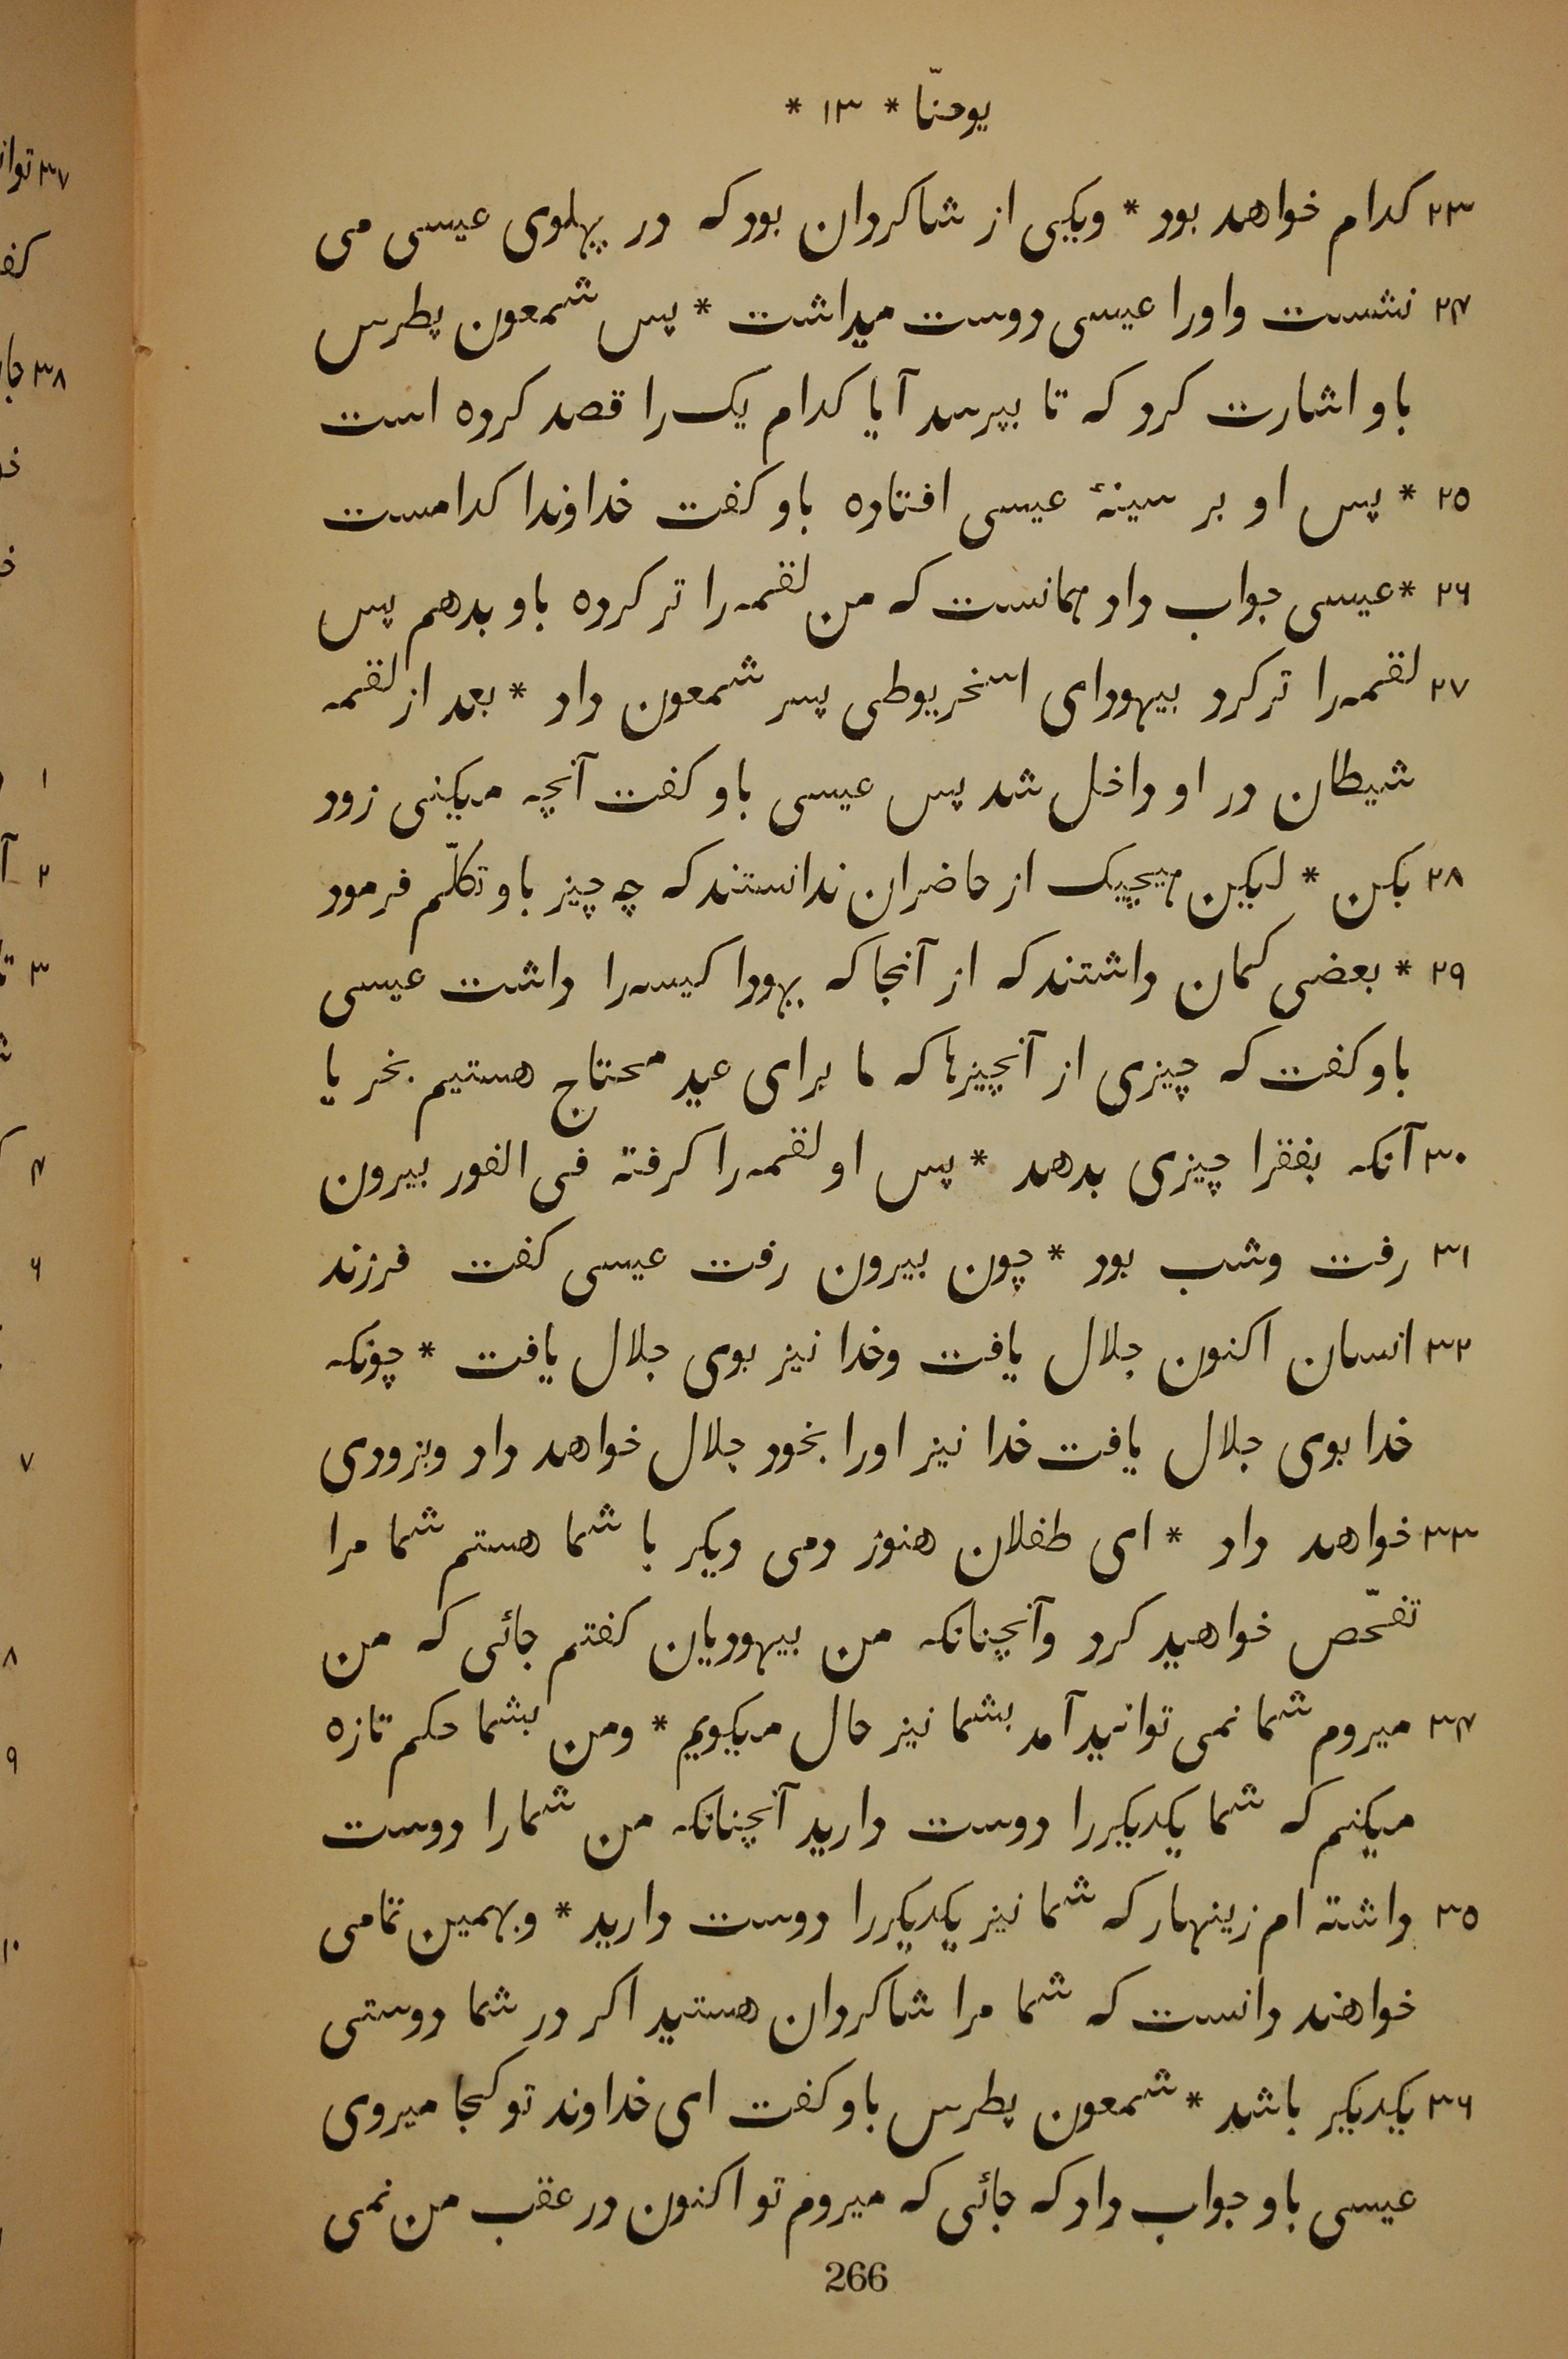 یوحنّا * ۱۳ *
۲۳ کدام خواهد بود * ویکی از شاکردان بود که در پهلوی عیسی می
۲۴ نشست واورا عیسی دوست میداشت * پس شمعون پطرس
باو اشارت کرد که تا بپرسد آیا کدام یک را قصد کرده است
۲۵ * پس او بر سینهٔ عیسی افتاده باو کفت خداوندا کدامست
۲۶ * عیسی جواب داد همانست که من لقمه را تر کرده باو بدهم پس
۲۷ لقمه را تر کرد بیهودای اسخریوطی پسر شمعون داد * بعد از لقمه
شیطان در او داخل شد پس عیسی باو کفت آنچه میکنی زود
۲۸ بکن * لیکن هیچیک از حاضران ندانستند که چه چیز باو تکلّم فرمود
۲۹ * بعضی کمان داشتند که از آنجا که یهودا کیسه را داشت عیسی
باو کفت که چیزی از آنچیزها که ما برای عید محتاج هستیم بخر یا
۳۰ آنکه بفقرا چیزی بدهد * پس او لقمه را کرفته فی الفور بیرون
۳۱ رفت وشب بود * چون بیرون رفت عیسی کفت فرزند
۳۲ انسان اکنون جلال یافت وخدا نیز بوی جلال یافت * چونکه
خدا بوی جلال یافت خدا نیز اورا بخود جلال خواهد داد وبزودی
۳۳ خواهد داد * ای طفلان هنوز دمی دیکر با شما هستم شما مرا
تفحّص خواهید کرد وآنچنانکه من بیهودیان کفتم جائی که من
۳۴ میروم شما نمی توانید آمد بشما نیز حال میکویم * ومن بشما حکم تازه
میکنم که شما یکدیکررا دوست دارید آنچنانکه من شمارا دوست
۳۵ داشته ام زینهار که شما نیز یکدیکررا دوست دارید * وبهمین تمامی
خواهند دانست که شما مرا شاکردان هستید اکر در شما دوستی
۳۶ یکدیکر باشد * شمعون پطرس باو کفت ای خداوند تو کجا میروی
عیسی باو جواب داد که جائی که میروم تو اکنون در عقب من نمی
266